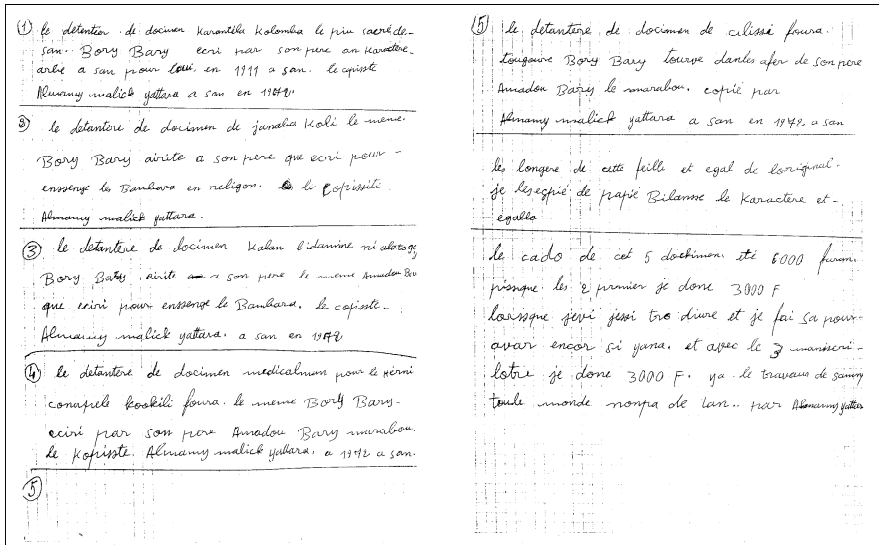 (1) le détenteur de docimen Karantéla Kolomba le piu sacré de-
san. Bory Bary ecri par son pere an Karactere-
arbe a san pour loui. en 1911 a san. le copisste
Almamy malick yattara a san en 1972.
② le detantere de docimen de jamaha Koli le meme.
Bory Bary airite a son pere que ecri pour -
enssenge les Banbara en religon. le Copissite
Almamy malick yattara.
③ le detantere de docimen Kalan
Bory Bary airite a son pere le meme Amadou Bou
que eciri pour enssenge le Banbara. le copisste-
Almamy malick yattara. a san en 1972
④ le detantere de docimen medicalman pour le herni
conapele kookili foura. le meme Bory Bary-
eciri par son pere Amadou Bary marabou.
le Kopisste. Almamy malick yattara. a 1972 a san.
⑤
(5) le detantere de docimen de cilissi foura.
tougoure Bory Bary tourve dantes afer de son pere
Amadou Bary le marabou. copié par
Almamy malick yattara a san en 1972. a san
les longere de cette feille et egal de loriginal.
je de papié Bilansse le Karactere et -
egalla
le cado de cet 5 dockimen eté 6000 furan.
pisque les 2 premier je done 3000 F
lorssque jevi jessi tro diure et je fai sa pour-
avar encor si yana. et avec le 3 maniscri-
lotre je done 3000 F. ya le travaus de sanmy
toule monde nonpa de lan.. par Almamy yattar